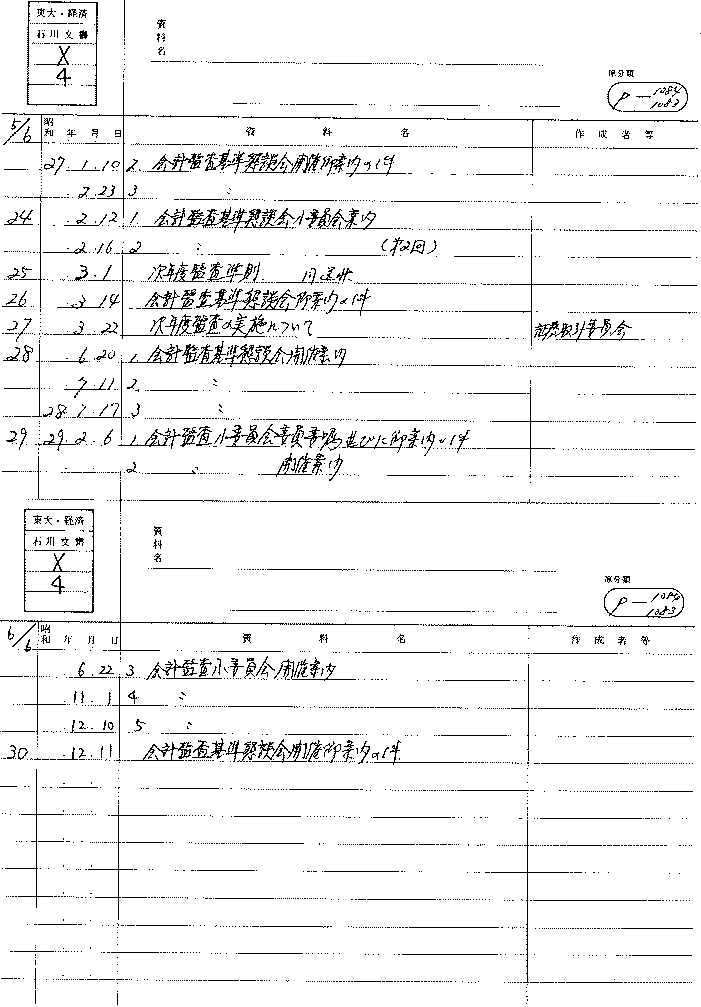 東大・経済
石川文書
X
4
資料名
原分類
P-1084
1083
5/6 昭和 年 月 日 資 料 名 作 成 者 名 等
27. 1. 10 2 会計監査基準懇談会開催御案内の件
2. 23 3 〃
24 2. 12 1 会計監査基準懇談会小委員会案内
2. 16 2 〃 (第2回)
25 3. 1 次年度監査準則 同送状
26 3. 14 会計監査基準懇談会御案内の件
27 3. 22 次年度監査の実施について 証券取引委員会
28 6. 20 1 会計監査基準懇談会開催案内
7. 11 2 〃
28. 7. 17 3 〃
29 29. 2. 6 1 会計監査小委員会委員委嘱並びに御案内の件
2 〃 開催案内
東大・経済
石川文書
X
4
資料名
原分類
P-1084
1083
6/6 昭和 年 月 日 資 料 名 作 成 者 名 等
6. 22 3 会計監査小委員会開催案内
11. 1 4 〃
12. 10 5 〃
30 12. 11 会計監査基準懇談会開催御案内の件